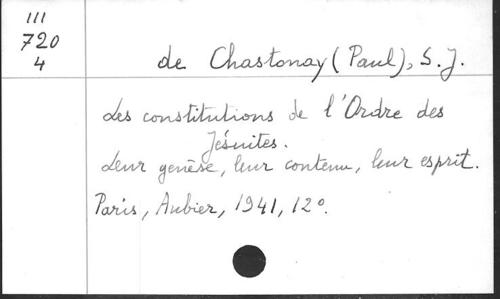 III
720
4
de Chastonay (Paul), S. J.
Les constitutions de l'Ordre des
Jésuites.
Leur genèse, leur contenu, leur esprit.
Paris, Aubier, 1941, 12°.